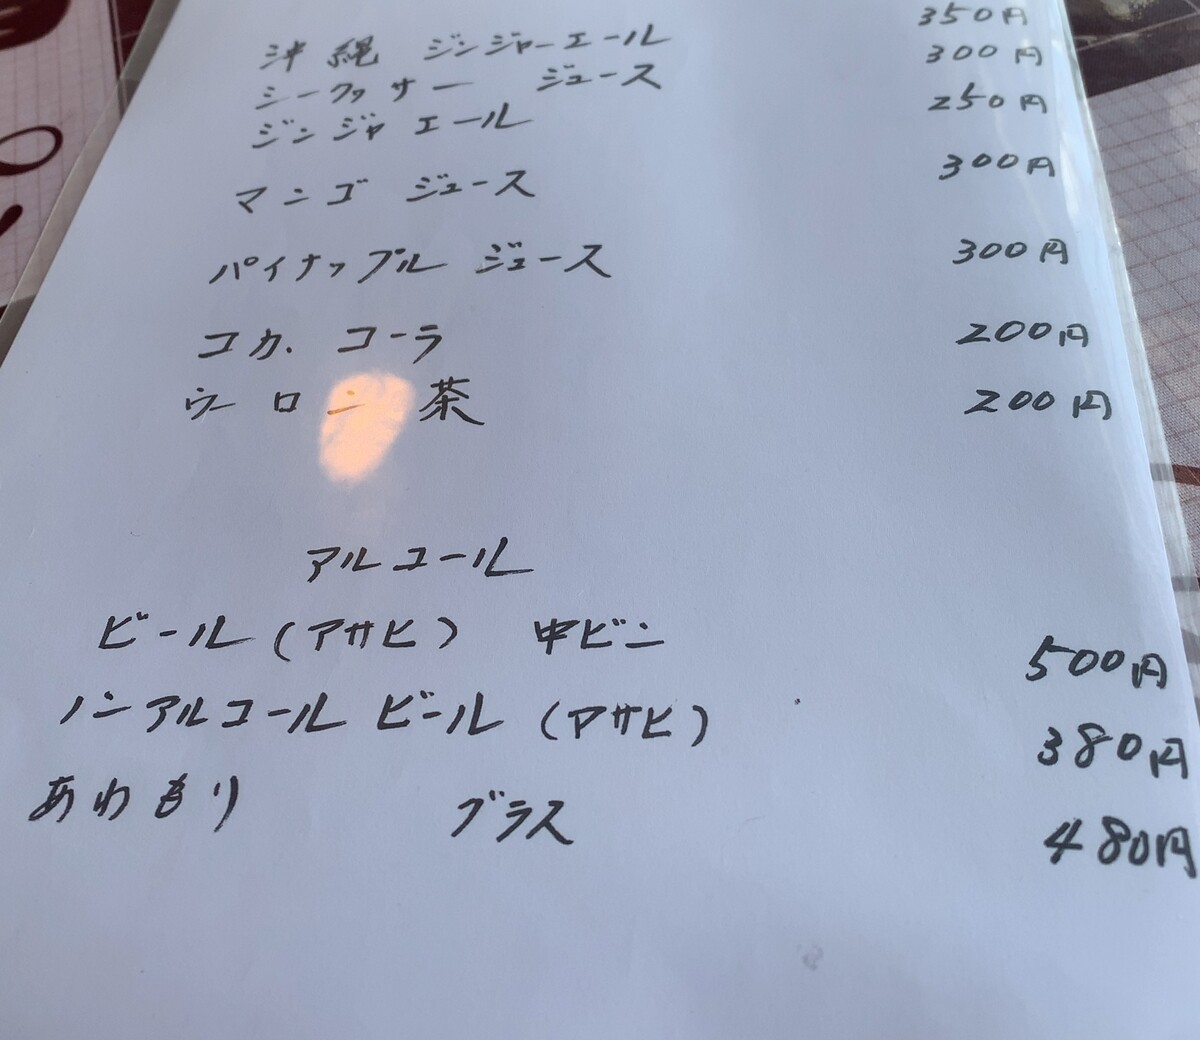 沖縄 ジンジャーエール 350円
シークヮサー ジュース 300円
ジンジャエール 250円
マンゴ ジュース 300円
パイナップル ジュース 300円
コカ、コーラ 200円
ウーロン茶 200円
アルコール
ビール(アサヒ) 中ビン 500円
ノンアルコール ビール (アサヒ) 380円
あわもり グラス 480円